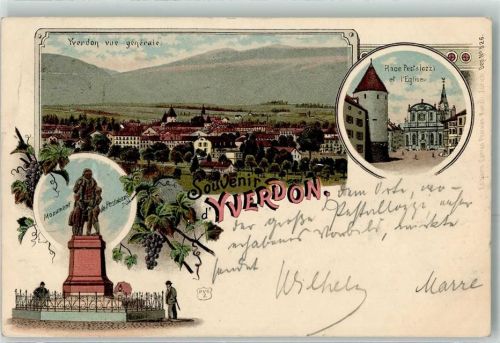 Yverdon vue générale
Place Pestalozzi
et l'Eglise
Monument
de Pestalozzi
Souvenir
d'YVERDON.
dem Orte, wo
der große Pestalozzi, unser
erhabenes Vorbild, wirkte
sendet
Wilhelm Marre